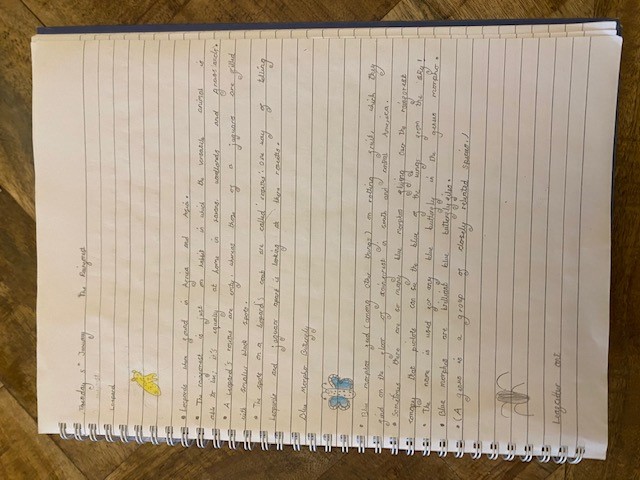 Tuesday January The Rainforest
Leopard
• Leopards when found in Africa and Asia.
• The rainforest is just one habitat in which the versatile animal is
able to live; it's equally at home in savanna, woodlands and grasslands.
• A leopard's rosettes are empty, whereas those of a jaguar are filled
with smaller black spots.
• The spots on a leopard's coat are called 'rosettes'. One way of telling
leopards and jaguars apart is looking at their rosettes.
Blue Morpho Butterfly
• Blue morphos feed (among other things) on rotting fruit, which they
find on the floor of rainforest in South and Central America.
• Sometimes there are so many blue morphos flying over the rainforest
canopy that pilots can see the blue of the wings from the sky!
• The name is used for any blue butterfly in the genus morpho.
• Blue morphos are brilliant blue butterflies.
• (A genus is a group of closely related species.)
Leafcutter ant